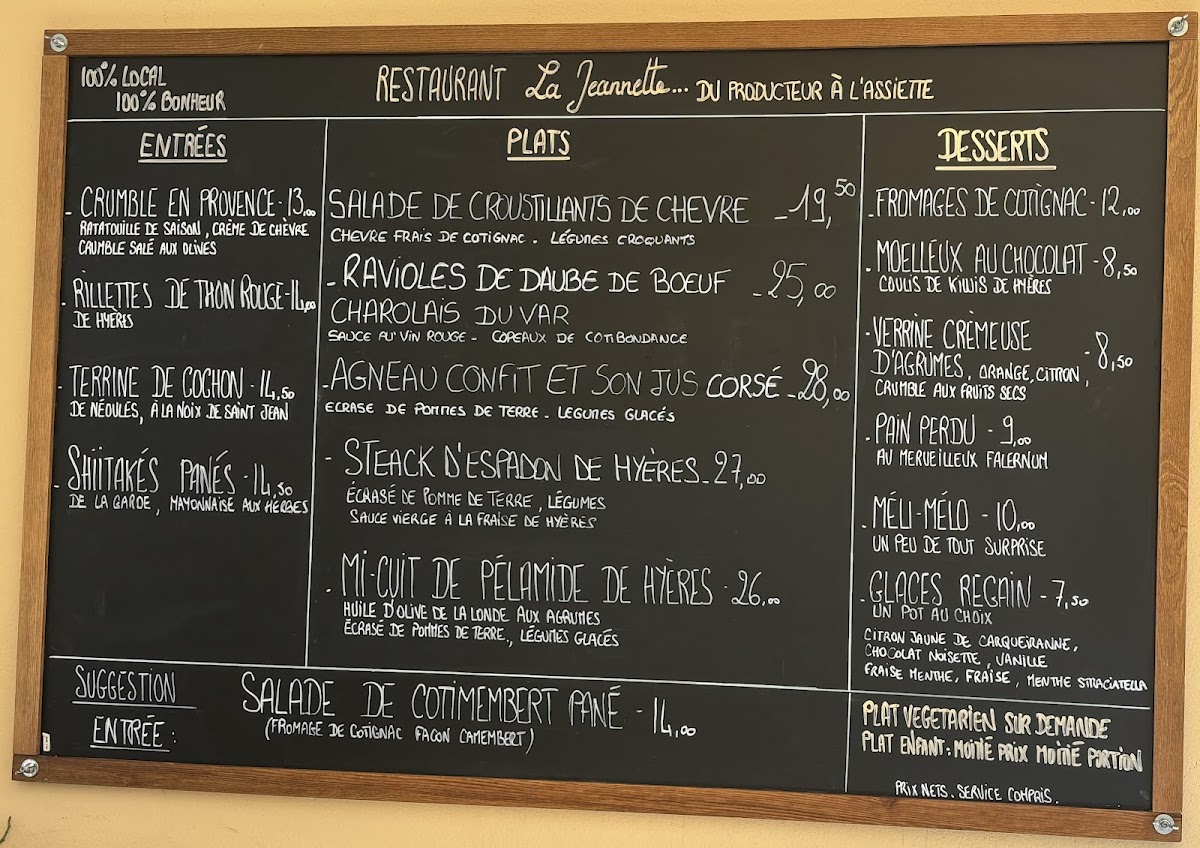 100% LOCAL
100% BONHEUR
RESTAURANT La Jeannette... DU PRODUCTEUR À L'ASSIETTE
ENTRÉES
- CRUMBLE EN PROVENCE - 13,00
RATATOUILLE DE SAISON, CRÈME DE CHÈVRE
CRUMBLE SALÉ AUX OLIVES
- RILLETTES DE THON ROUGE - 14,00
DE HYÈRES
- TERRINE DE COCHON - 14,50
DE NÉOULES, A LA NOIX DE SAINT JEAN
- SHIITAKÉS PANÉS - 14,50
DE LA GARDE, MAYONNAISE AUX HERBES
PLATS
SALADE DE CROUSTILLANTS DE CHEVRE - 19,50
CHEVRE FRAIS DE COTIGNAC - LÉGUMES CROQUANTS
- RAVIOLES DE DAUBE DE BOEUF - 25,00
CHAROLAIS DU VAR
SAUCE AU VIN ROUGE - COPEAUX DE COTIBONDANCE
- AGNEAU CONFIT ET SON JUS CORSÉ - 28,00
ECRASE DE POMMES DE TERRE - LEGUMES GLACÉS
- STEACK D'ESPADON DE HYÈRES - 27,00
ÉCRASÉ DE POMME DE TERRE, LÉGUMES
SAUCE VIERGE À LA FRAISE DE HYÈRES
- MI-CUIT DE PÉLAMIDE DE HYÈRES - 26,00
HUILE D'OLIVE DE LA LONDE AUX AGRUMES
ÉCRASÉ DE POMMES DE TERRE, LÉGUMES GLACÉS
DESSERTS
- FROMAGES DE COTIGNAC - 12,00
- MOELLEUX AU CHOCOLAT - 8,50
COULIS DE KIWIS DE HYÈRES
- VERRINE CRÈMEUSE
D'AGRUMES, ORANGE, CITRON, - 8,50
CRUMBLE AUX FRUITS SECS
- PAIN PERDU - 9,00
AU MERVEILLEUX FALERNUM
- MÉLI-MÉLO - 10,00
UN PEU DE TOUT SURPRISE
- GLACES REGAIN - 7,50
UN POT AU CHOIX
CITRON JAUNE DE CARQUEIRANNE,
CHOCOLAT NOISETTE, VANILLE
FRAISE MENTHE, FRAISE, MENTHE STRACIATELLA
SUGGESTION
ENTRÉE :
SALADE DE COTIMEMBERT PANÉ - 14,00
(FROMAGE DE COTIGNAC FAÇON CAMEMBERT)
PLAT VEGETARIEN SUR DEMANDE
PLAT ENFANT : MOITIÉ PRIX MOITIÉ PORTION
PRIX NETS. SERVICE COMPRIS.